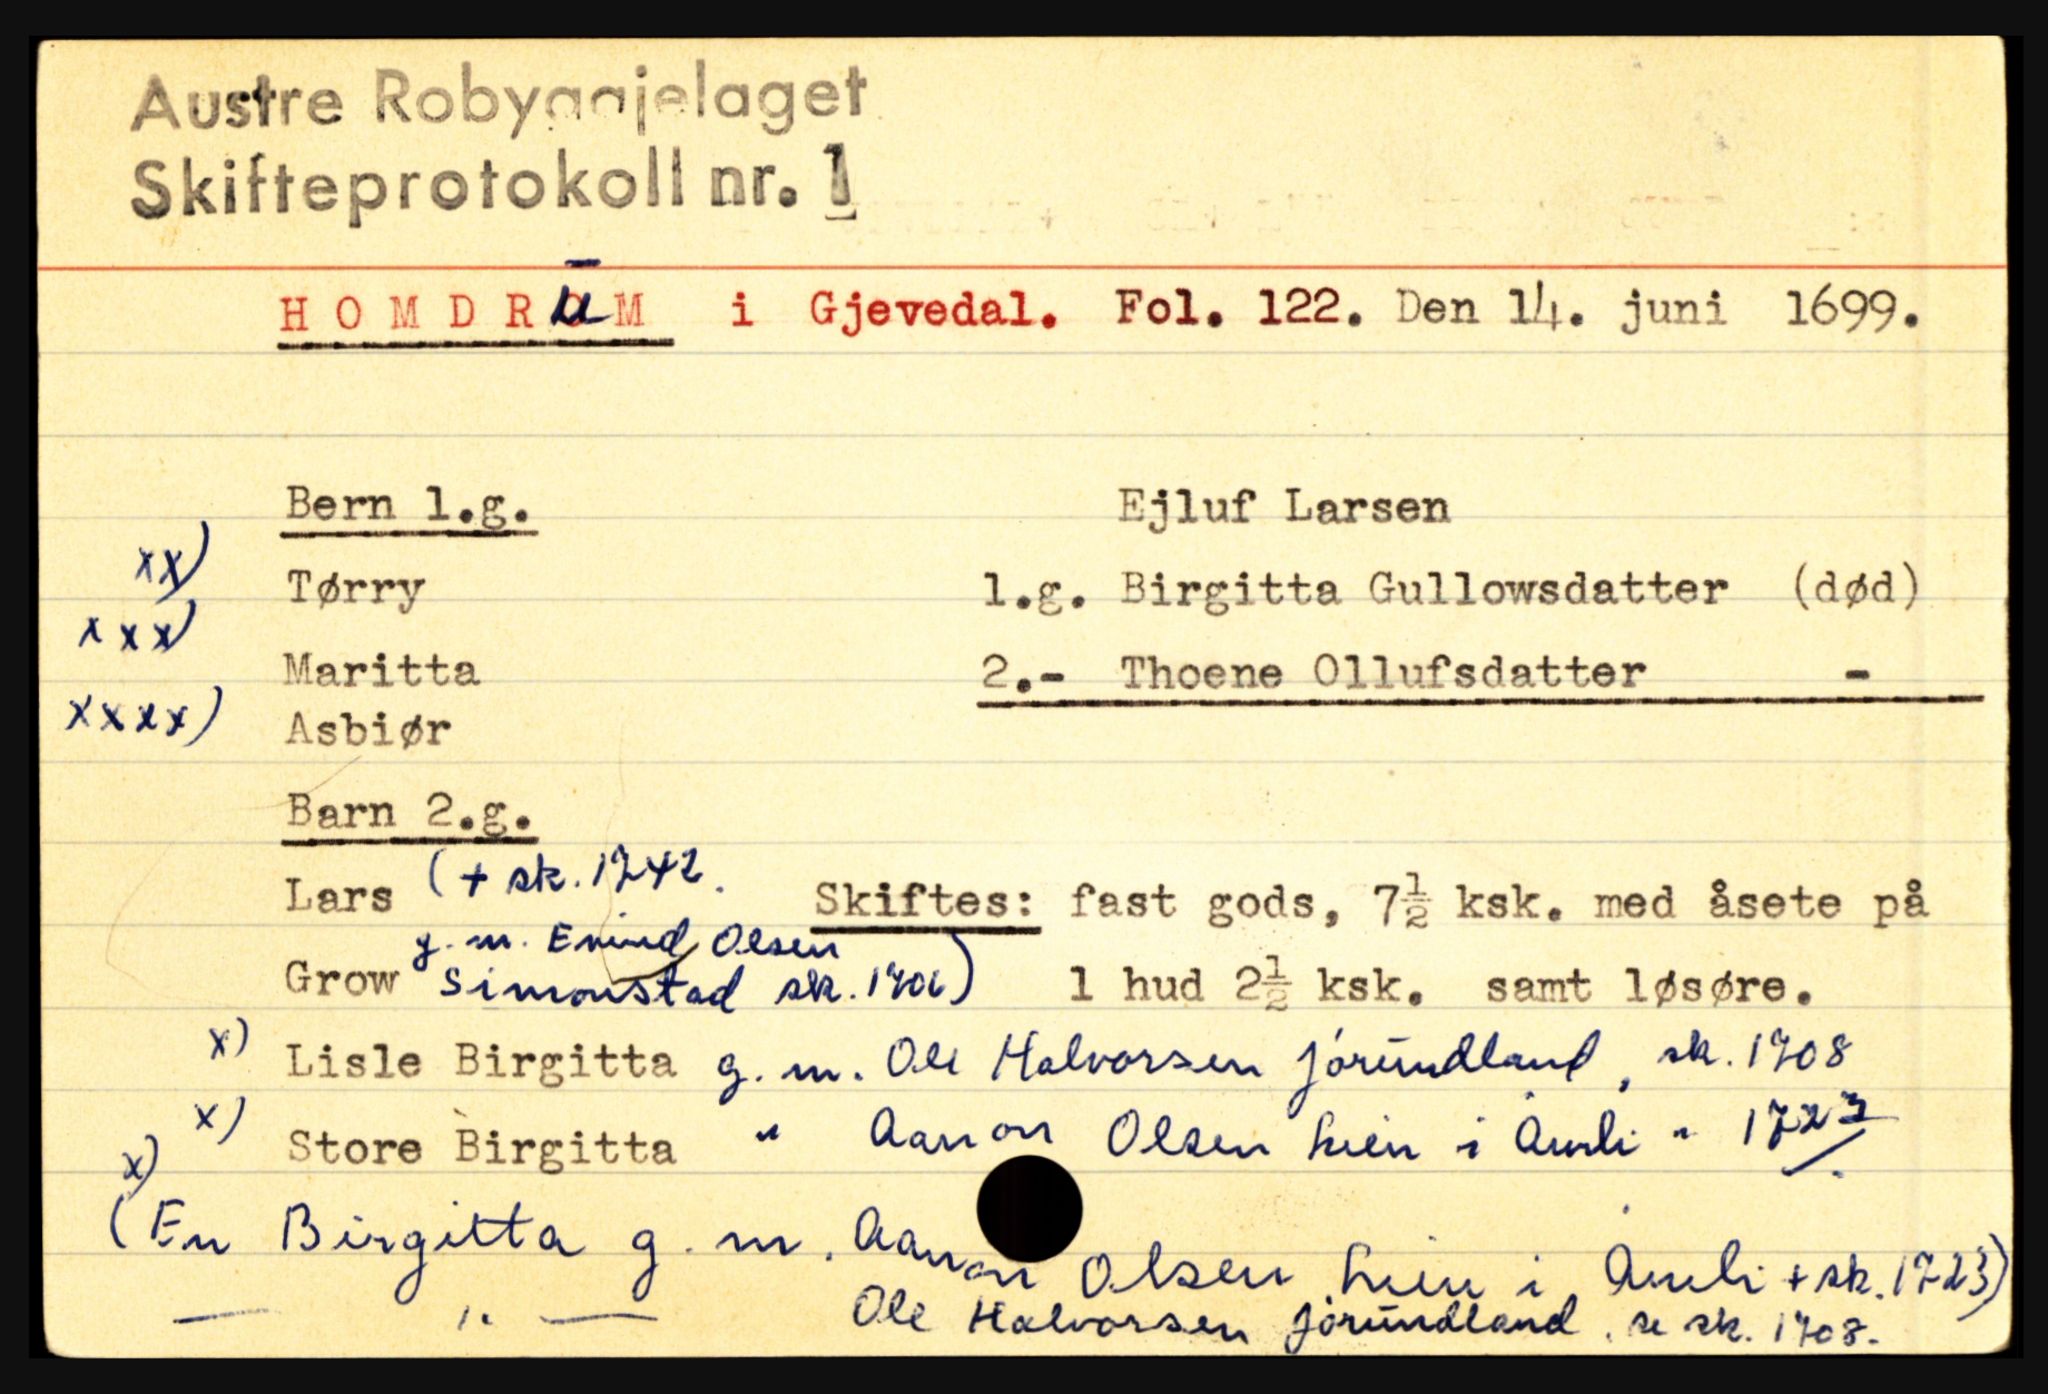 Austre Robyggjelaget
Skifteprotokoll nr. 1
HOMDRUM i Gjevedal. Fol. 122. Den 14. juni 1699.
Bern 1.g. Ejluf Larsen
xx) Tørry 1.g. Birgitta Gullowsdatter (død)
xxx) Maritta 2.- Thoene Ollufsdatter -
xxxx) Asbiør
Barn 2.g.
Lars (+ sk. 1742. Skiftes: fast gods, 7½ ksk. med åsete på
g.m. Enind Olsen
Grow Simonstad sk. 1706) 1 hud 2½ ksk. samt løsøre.
x) Lisle Birgitta g.m. Ole Halvorsen Jorundland, sk. 1708
x) Store Birgitta " Aanon Olsen Lien i Åmli " 1723
x)
(En Birgitta g.m. Aanon Olsen Lien i Åmli + sk. 1723)
— " — Ole Halvorsen Jorundland. se sk. 1708.